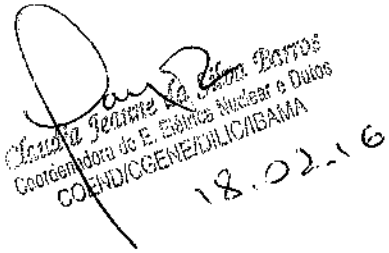 Claudia Jeanne da Silva Barros
Coordenadora de E. Elétrica Nuclear e Dutos
COEND/CGENE/DILIC/IBAMA
18.02.16